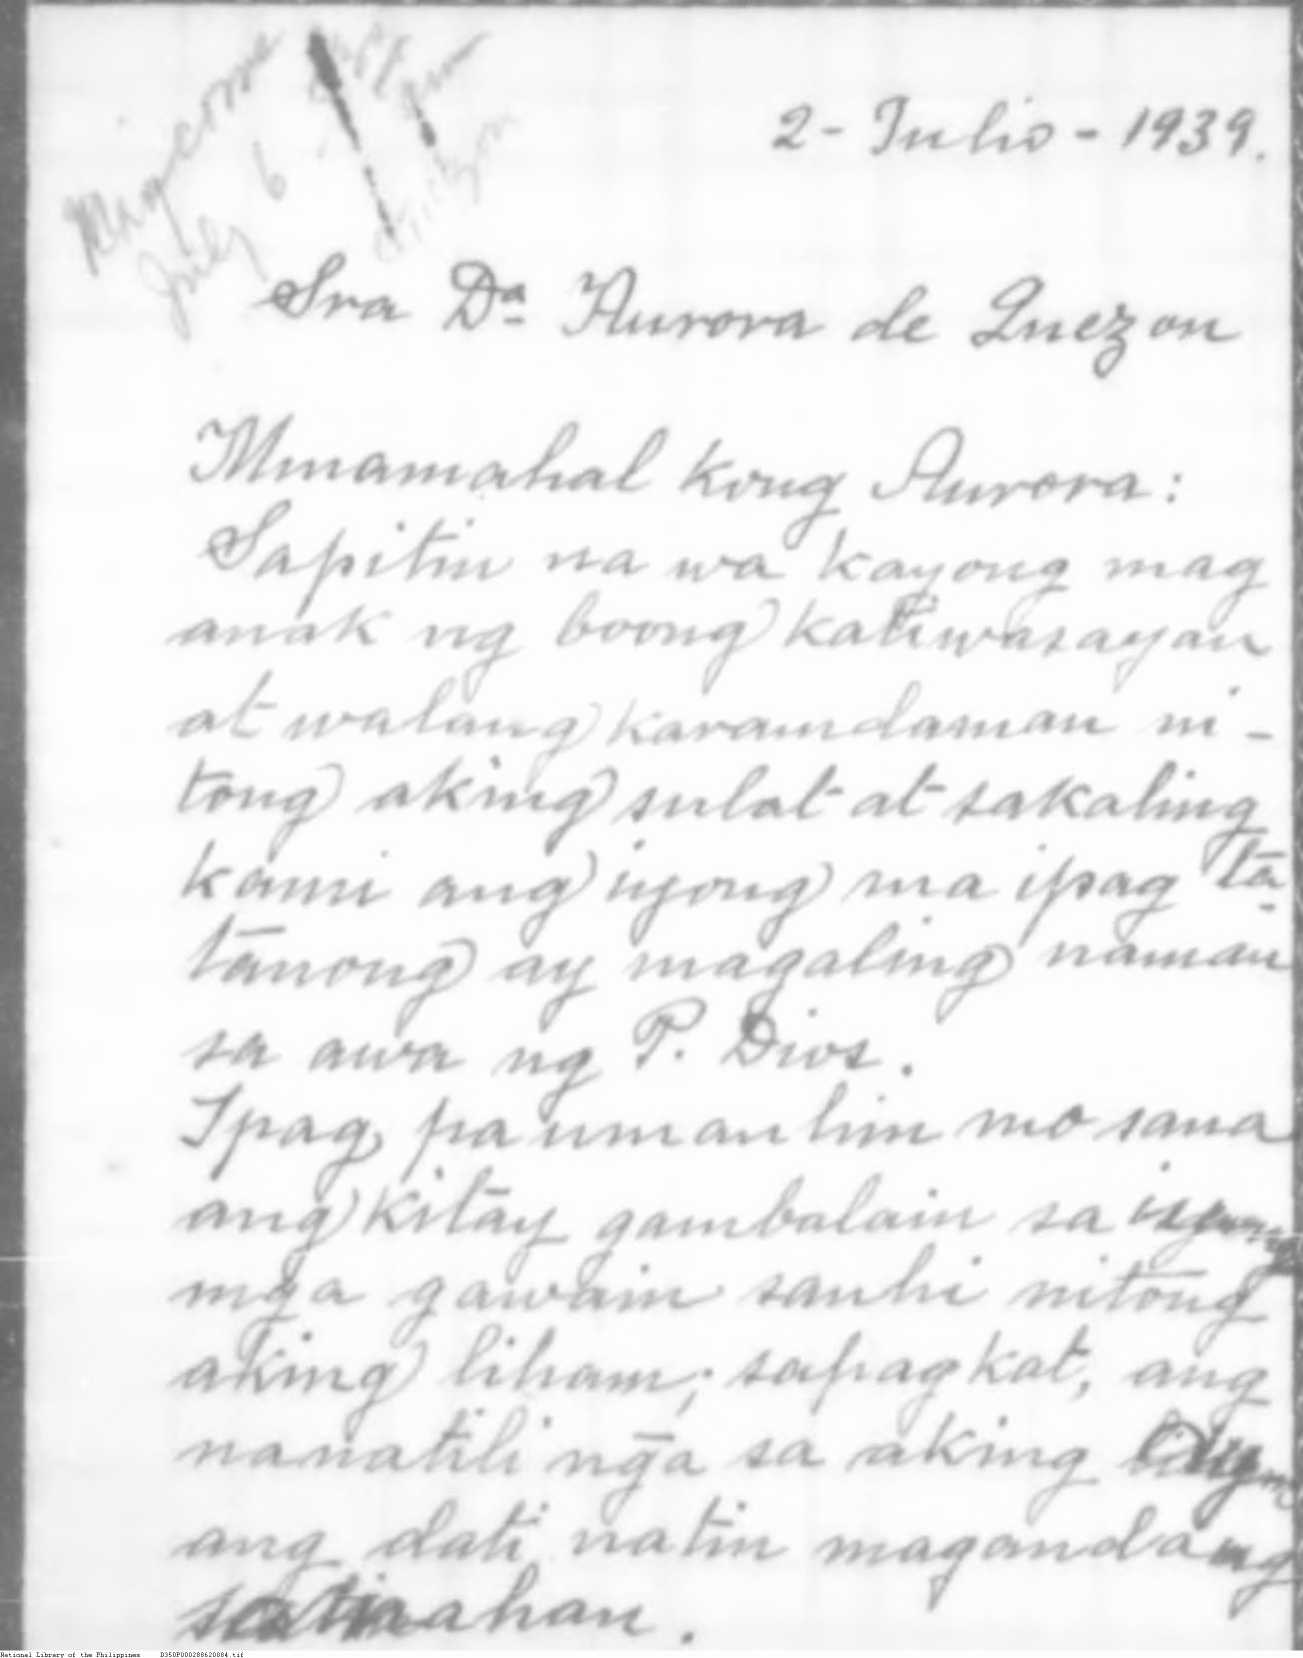 May come
July 6
2 - Julio - 1939.
Sra Dª Aurora de Quezon
Minamahal kong Aurora:
Sapitin na wa kayong mag
anak ng boong katiwasayan
at walang karamdaman ni -
tong aking sulat at sakaling
kami ang iyong ma ipag ta
tanong ay magaling naman
sa awa ng P. Dios.
Ipag pa umanhin mo sana
ang kitay gambalain sa iyong
mga gawain sanhi nitong
aking liham; sapagkat, ang
nanatili nga sa aking
ang dati natin magandang